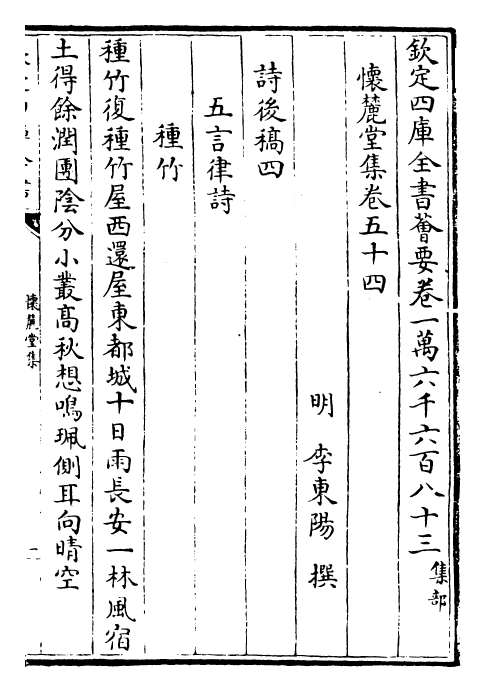 欽定四庫全書薈要卷一萬六千六百八十三 集部
懷麓堂集卷五十四
明 李東陽 撰
詩後稿四
五言律詩
種竹
種竹復種竹屋西還屋東都城十日雨長安一林風宿
土得餘潤團陰分小叢高秋想鳴珮側耳向晴空
懷麓堂集